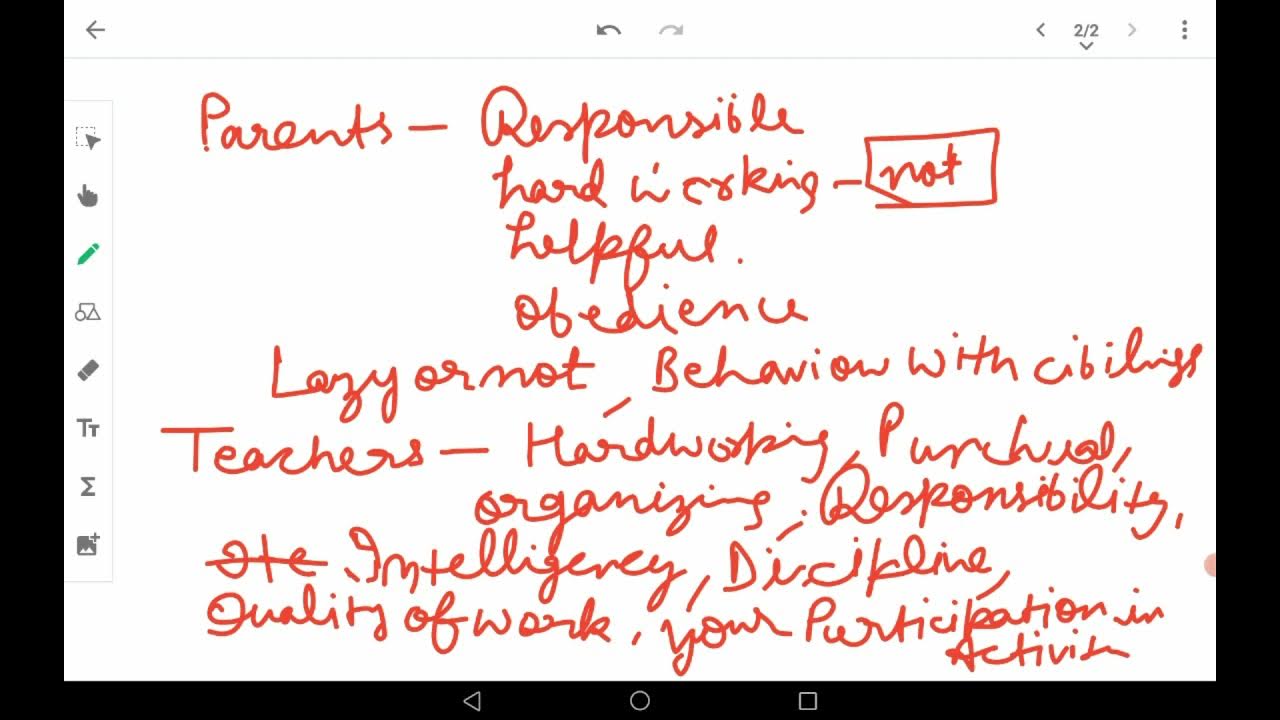 2/2
Parents - Responsible
hard working - not
helpful.
obedience
Lazy or not, Behaviour with cibilings
Tт
Teachers - Hardworking, Punctual,
Σ
organizing, Responsibility,
Ote Intelligency, Discipline,
Quality of work, your Participation in
Activity